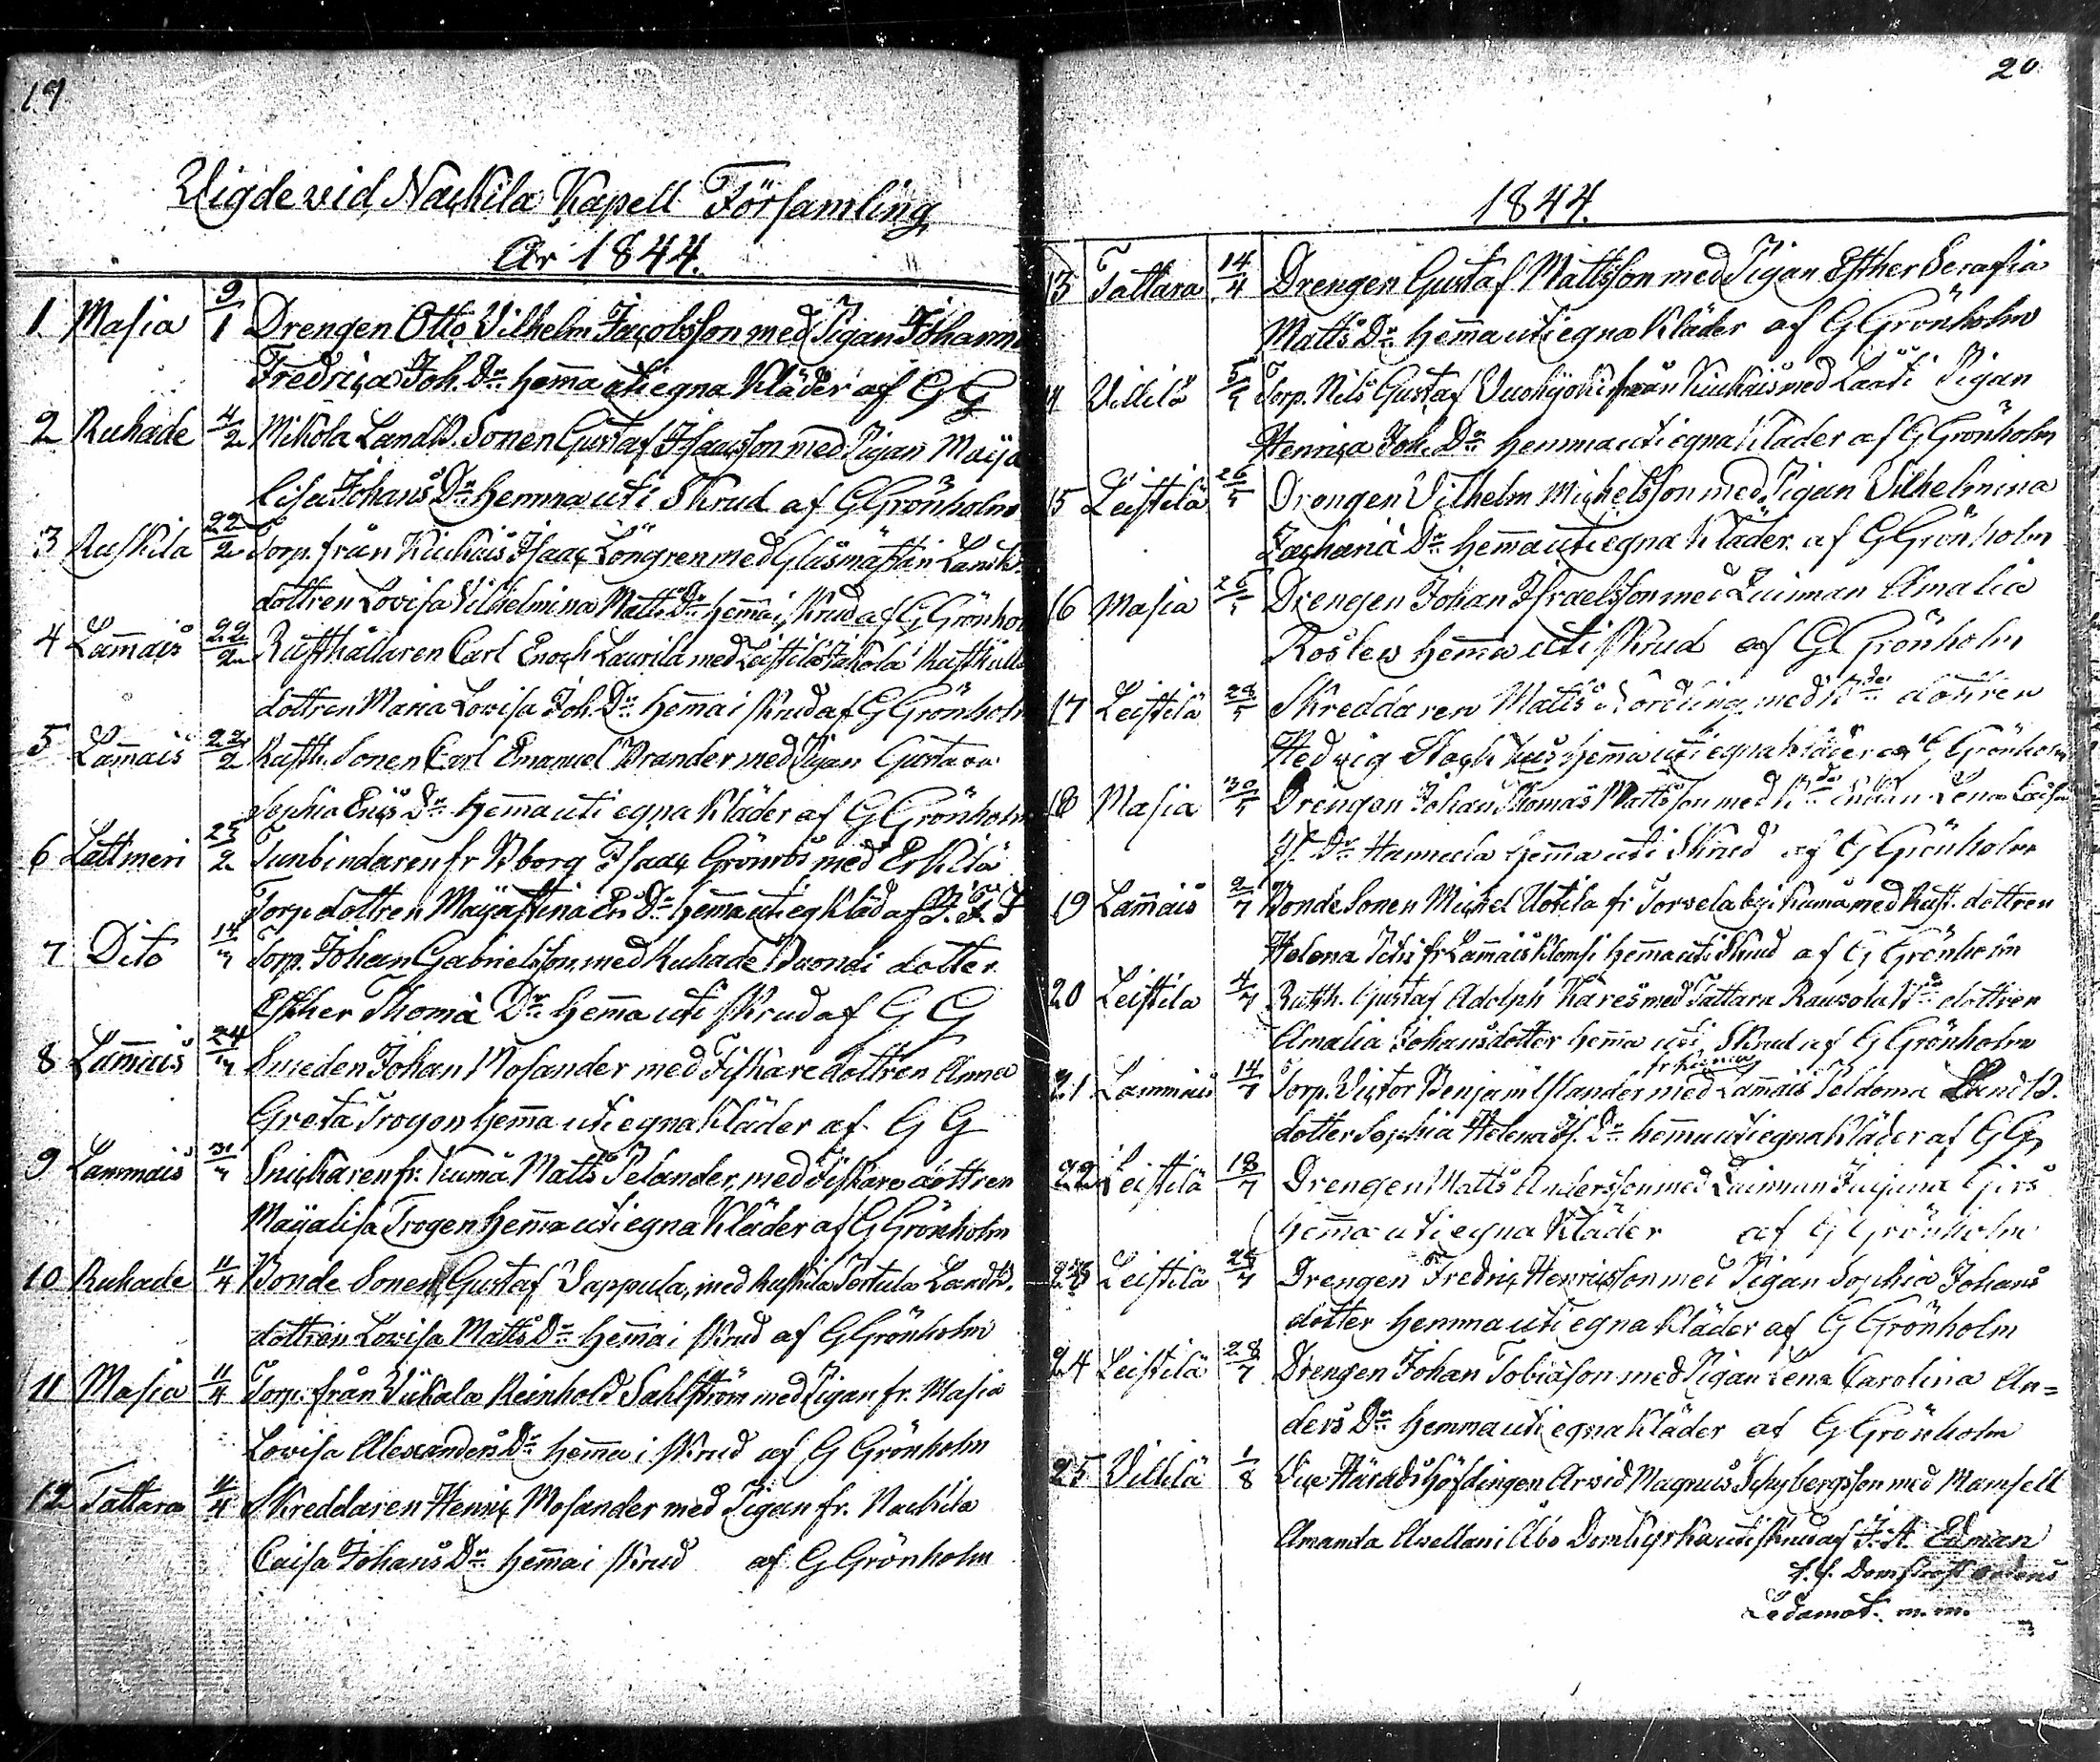 19
Wigde vid Nackila Kapell Församling
År 1844.
1 Masia 9/1 Drengen Otto Vilhelm Jacobsson med Pigan Johanna
Fredrica Joh. Dr hemma uti egna Kläder af G G
2 Ruhade 4/2 Mikola Landb. Sonen Gustaf Isacsson med Pigan Maija
Lisa Johans Dr Hemma uti Skrud af G Grönholm
3 Ruskila 22/2 Torp. från Kiukais Isaac Löngren med Glasmästar Landb.
dottren Lovisa Vilhelmina Matts Dr hemma i Skrud af G Grönholm
4 Lammais 22/2 Rusthållaren Carl Enoch Laurila med Leistilä Jakola Rusthåll.
dottren Maria Lovisa Joh. Dr Hemma i Skrud af G Grönholm
5 Lammais 22/2 Rusth. Sonen Carl Emanuel Brander med Pigan Gustava
Sophia Erics Dr hemma uti egna Kläder af G Grönholm
6 Lattmeri 25/2 Tunbindaren fr Bborg Isaac Grönroos med Erkilä
Torp. dottren Maija Stina Er. Dr hemma uti eg Kläd af
7 Dito 14/3 Torp. Johan Gabrielsson med Ruhade Buondi dotter
Esther Thomæ Dr Hemma uti Skrud af G G
8 Lammais 24/3 Smeden Johan Mosander med Fiskare dottren Anna
Greta Trogen hemma uti egna Kläder af G G
9 Lammais 31/3 Snickaren fr. Kumå Matts Pelander, med Fiskare dottren
Maijalisa Trogen Hemma uti egna Kläder af G Grönholm
10 Ruhade 11/4 Bonde Sonen Gustaf Vappula, med Ruskila Pertula Landb.
dottren Lovisa Matts Dr Hemma i Skrud af G Grönholm
11 Masia 11/4 Torp. från Viikala Reinhold Sahlström med Pigan fr. Masia
Lovisa Alexanders Dr hemma i Skrud af G Grönholm
12 Tattara 11/4 Skreddaren Henric Mosander med Pigan fr. Nackila
Caisa Johans Dr hemma i Skrud af G Grönholm
20
1844.
13 Tattara 14/4 Drengen Gustaf Mattsson med Pigan Esther Serafia
Matts Dr Hemma uti egna Kläder af G Grönholm
14 Villilä 5/5 Torp. Nils Gustaf Vuohijoki från Kiukais med Pigan
Henrica Joh. Dr hemma uti egna Kläder af G Grönholm
15 Leistilä 26/5 Drengen Vilhelm Michelsson med Pigan Vilhelmina
Zachariæ Dr hemma uti egna Kläder af G Grönholm
16 Masia 26/5 Drengen Johan Israelsson med Quinnan Amalia
Roslew hemma uti Skrud af G Grönholm
17 Leistilä 28/5 Skreddaren Matts Nordling med Bde dottren
Hedvig hemma uti egna kläder af G Grönholm
18 Masia 30/5 Drengen Johan Thomas Mattsson med Bde Enkan Lena Caisa
Is. Dr Hannula hemma uti Skrud af G Grönholm
19 Lammais 2/7 Bonde Sonen Michel Uotila fr Sorvola by i Kumå med Rust. dottren
Helena fr Lammais Klomsi hemma uti Skrud af G Grönholm
20 Leistila 4/7 Rusth. Gustaf Adolph Kares med Tattara Rausola Bde dottren
Amalia Johansdotter hemma uti Skrud af G Grönholm
fr Kiuma
21 Lammais 14/7 Torp. Victor Benjam Ylander med Lammais Peldoma Landb.
dotter Sophia Helena Is. Dr hemma uti egna Kläder af G G
22 Leistilä 18/7 Drengen Matts Andersson med Quinnan
hemma uti egna Kläder af G Grönholm
23 Leistilä 28/7 Drengen Fredric Henricsson med Pigan Sophia Johans
dotter hemma uti egna Kläder af G Grönholm
24 Leistilä 28/7 Drengen Johan Tobiason med Pigan Lena Carolina An=
ders Dr Hemma uti egna Kläder af G Grönholm
25 Villilä 1/8 Vice Häradshöfdingen Arvid Magnus Schybergsson med Mamsell
Amanda Avellan i Åbo Domkyrka uti Skrud af J. A. Edman
Ledamot. m. m.